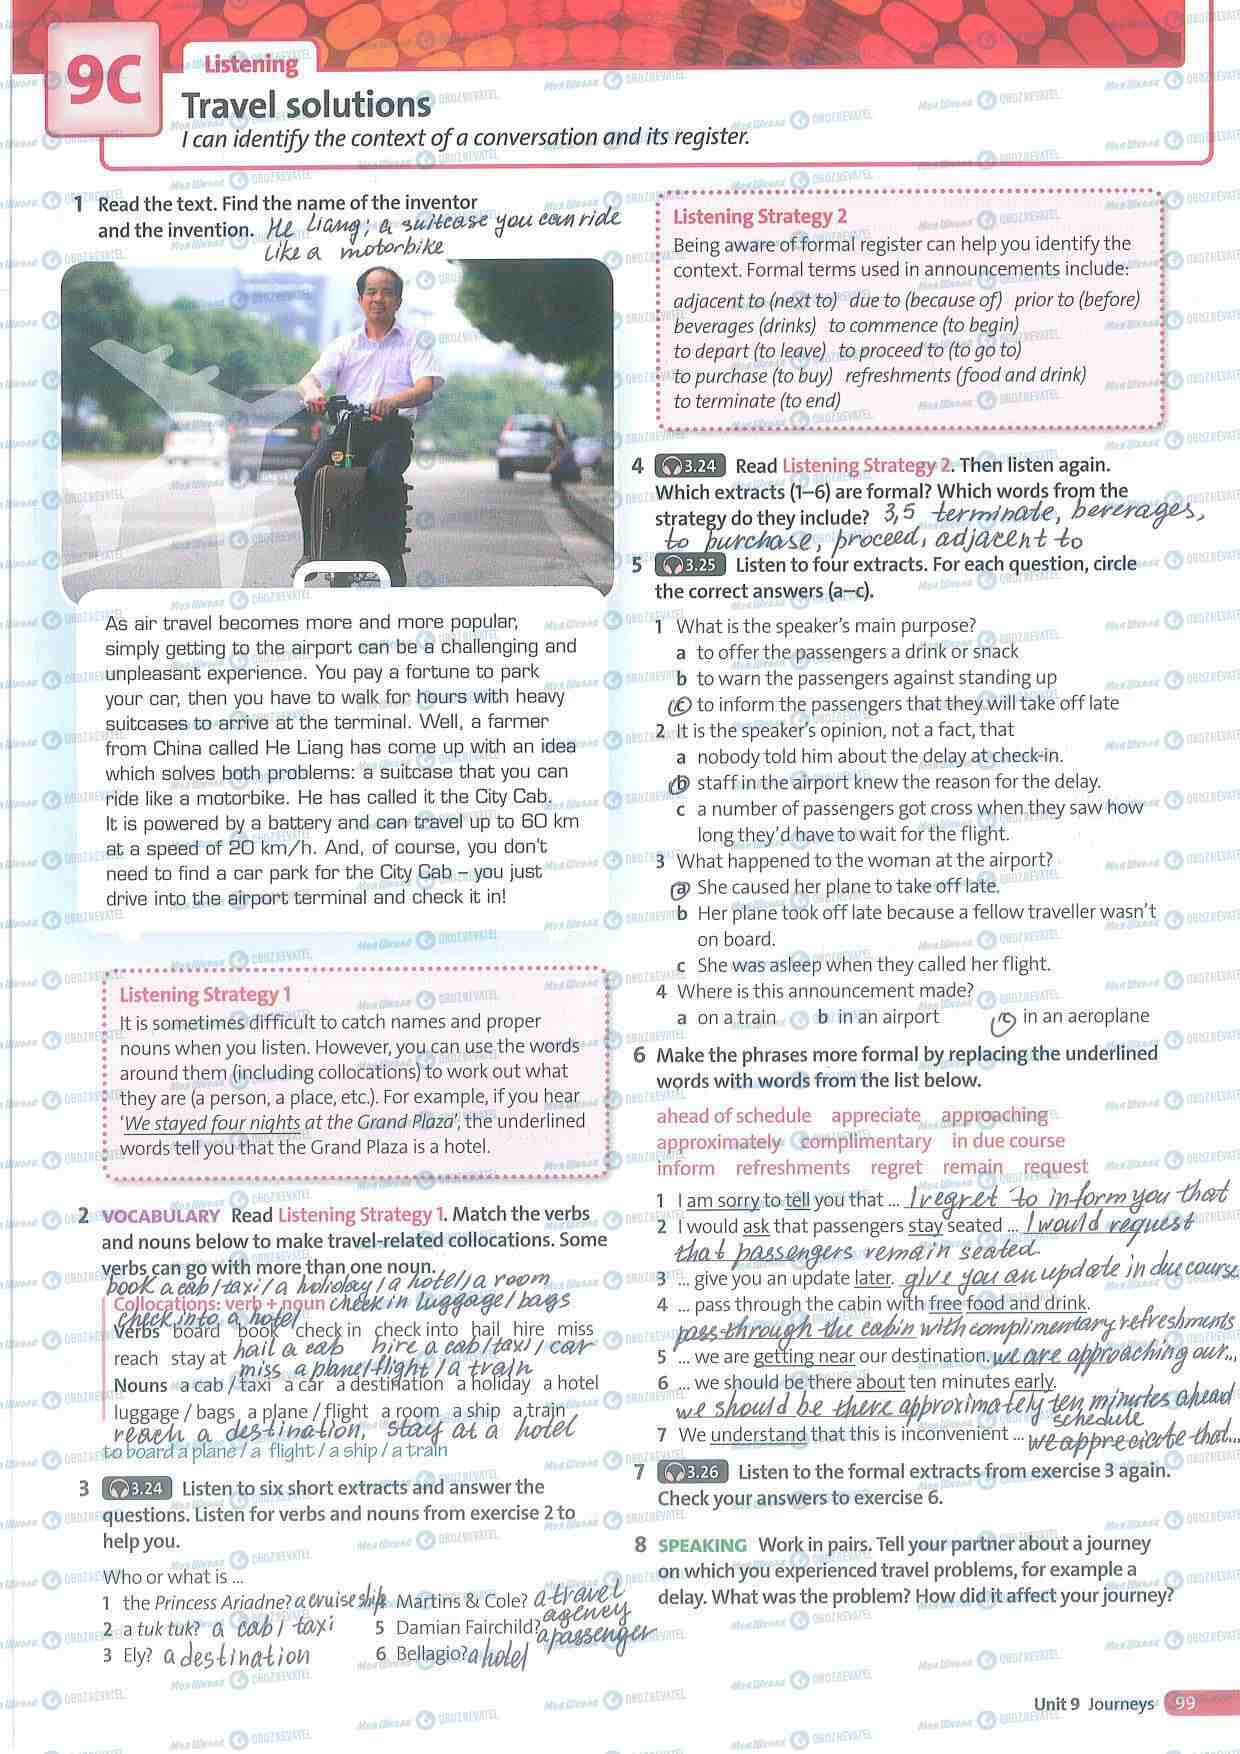 9C
Listening
Travel solutions
I can identify the context of a conversation and its register.
1 Read the text. Find the name of the inventor
and the invention. He Liang; a suitcase you can ride
like a motorbike
As air travel becomes more and more popular,
simply getting to the airport can be a challenging and
unpleasant experience. You pay a fortune to park
your car, then you have to walk for hours with heavy
suitcases to arrive at the terminal. Well, a farmer
from China called He Liang has come up with an idea
which solves both problems: a suitcase that you can
ride like a motorbike. He has called it the City Cab.
It is powered by a battery and can travel up to 60 km
at a speed of 20 km/h. And, of course, you don't
need to find a car park for the City Cab – you just
drive into the airport terminal and check it in!
Listening Strategy 1
It is sometimes difficult to catch names and proper
nouns when you listen. However, you can use the words
around them (including collocations) to work out what
they are (a person, a place, etc.). For example, if you hear
'We stayed four nights at the Grand Plaza', the underlined
words tell you that the Grand Plaza is a hotel.
2 VOCABULARY Read Listening Strategy 1. Match the verbs
and nouns below to make travel-related collocations. Some
verbs can go with more than one noun.
book a cab/taxi/a holiday/a hotel/a room
Collocations: verb + noun check in luggage/bags
check into a hotel
Verbs board book check in check into hail hire miss
reach stay at hail a cab hire a cab/taxi/car
miss a plane/flight/a train
Nouns a cab / taxi a car a destination a holiday a hotel
luggage / bags a plane / flight a room a ship a train
reach a destination, stay at a hotel
to board a plane / a flight / a ship / a train
3 3.24 Listen to six short extracts and answer the
questions. Listen for verbs and nouns from exercise 2 to
help you.
Who or what is ...
1 the Princess Ariadne? a cruise ship
2 a tuk tuk? a cab/ taxi
3 Ely? a destination
4 Martins & Cole? a travel
agency
5 Damian Fairchild? a passenger
6 Bellagio? a hotel
Listening Strategy 2
Being aware of formal register can help you identify the
context. Formal terms used in announcements include:
adjacent to (next to) due to (because of) prior to (before)
beverages (drinks) to commence (to begin)
to depart (to leave) to proceed to (to go to)
to purchase (to buy) refreshments (food and drink)
to terminate (to end)
4 3.24 Read Listening Strategy 2. Then listen again.
Which extracts (1–6) are formal? Which words from the
strategy do they include? 3,5 terminate, bererages,
to purchase, proceed, adjacent to
5 3.25 Listen to four extracts. For each question, circle
the correct answers (a–c).
1 What is the speaker's main purpose?
a to offer the passengers a drink or snack
b to warn the passengers against standing up
c to inform the passengers that they will take off late
2 It is the speaker's opinion, not a fact, that
a nobody told him about the delay at check-in.
b staff in the airport knew the reason for the delay.
c a number of passengers got cross when they saw how
long they'd have to wait for the flight.
3 What happened to the woman at the airport?
a She caused her plane to take off late.
b Her plane took off late because a fellow traveller wasn't
on board.
c She was asleep when they called her flight.
4 Where is this announcement made?
a on a train b in an airport c in an aeroplane
6 Make the phrases more formal by replacing the underlined
words with words from the list below.
ahead of schedule appreciate approaching
approximately complimentary in due course
inform refreshments regret remain request
1 I am sorry to tell you that ... I regret to inform you that
2 I would ask that passengers stay seated ... I would request
that passengers remain seated
3 ... give you an update later. give you an update in due course
4 ... pass through the cabin with free food and drink.
pass through the cabin with complimentary refreshments
5 ... we are getting near our destination. we are approaching our...,
6 ... we should be there about ten minutes early.
we should be there approximately ten minutes ahead
schedule
7 We understand that this is inconvenient ... we appreciate that...
7 3.26 Listen to the formal extracts from exercise 3 again.
Check your answers to exercise 6.
8 SPEAKING Work in pairs. Tell your partner about a journey
on which you experienced travel problems, for example a
delay. What was the problem? How did it affect your journey?
Unit 9 Journeys 99